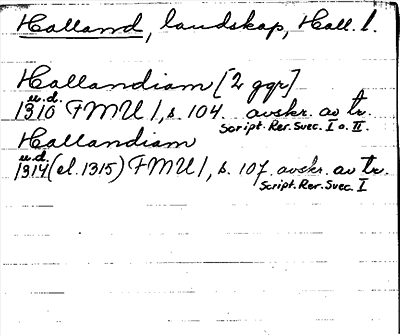 Halland, landskap, Hall. l.
Hallandiam [2 ggr]
u.d.
1310 FMU 1, s. 104. avskr. av tr.
Script. Rer. Svec. I o. II.
Hallandiam
u.d.
1314 (el. 1315) FMU 1, s. 107 avskr. av tr.
Script. Rer. Svec. I